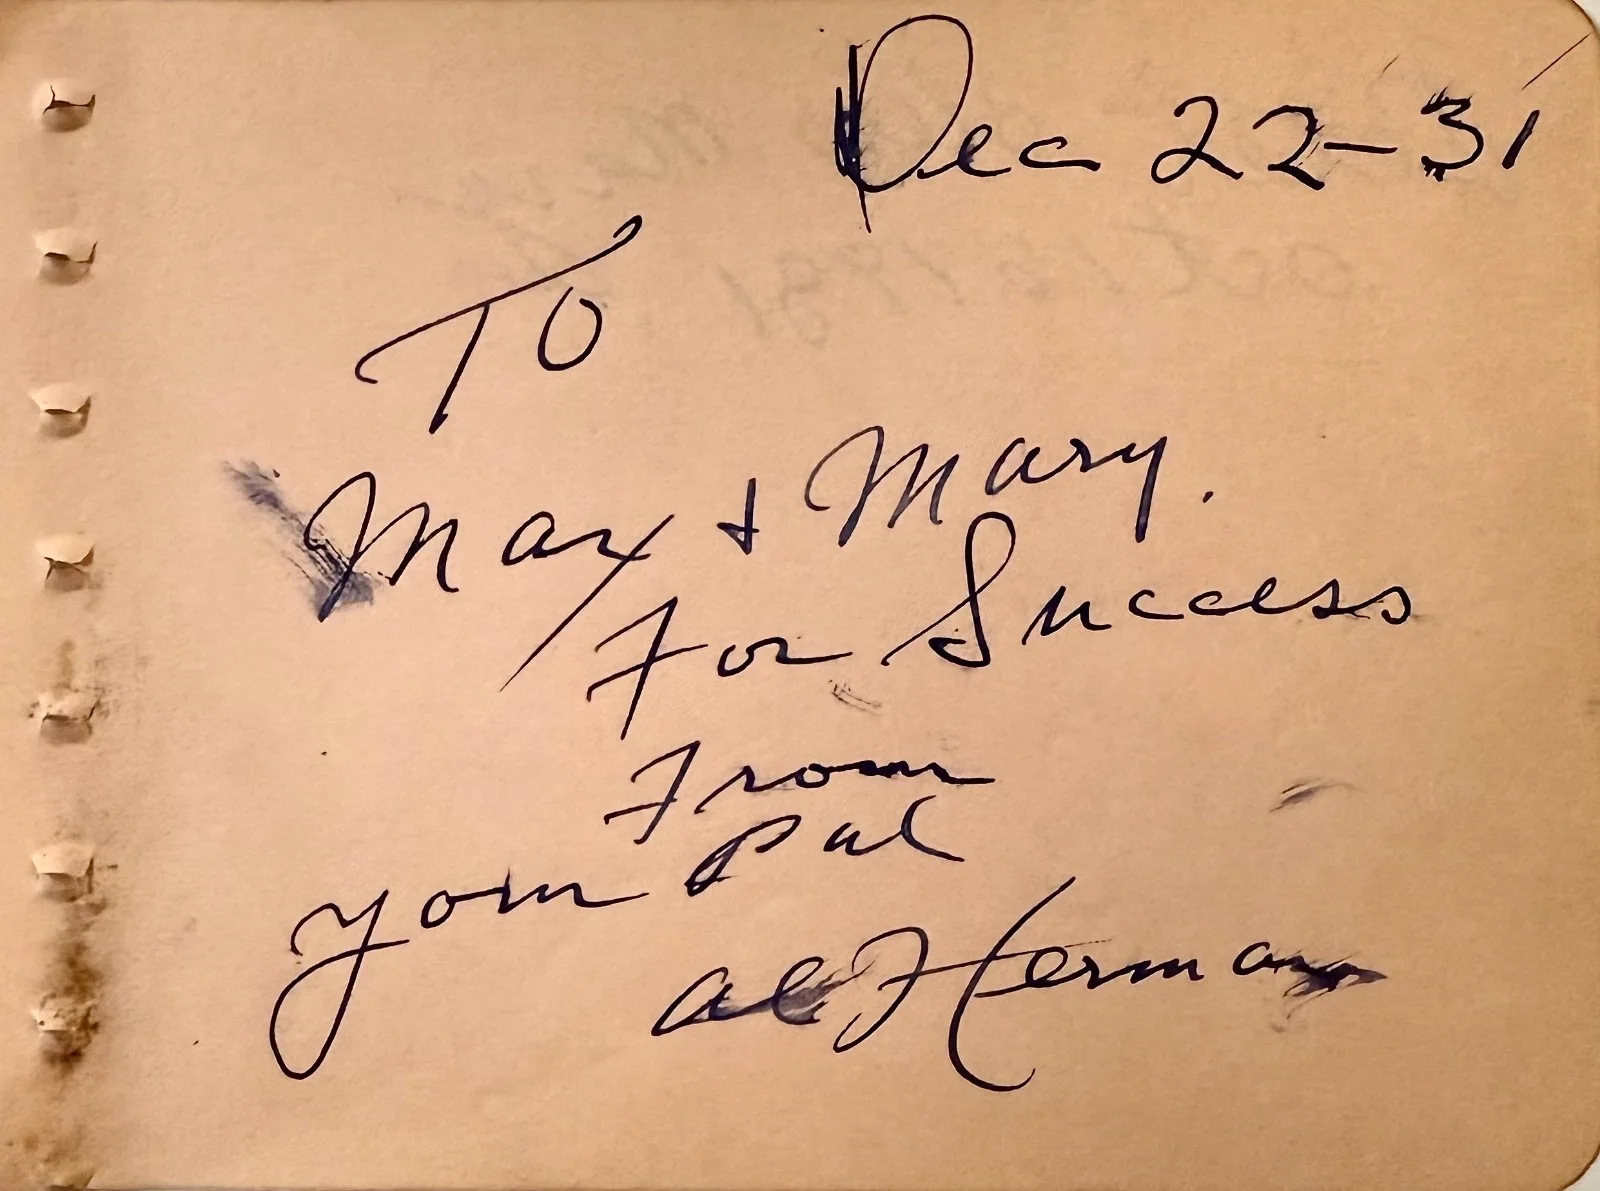 Dec 22-31
To
Max + Mary.
For Success
From
your pal
Al Herman